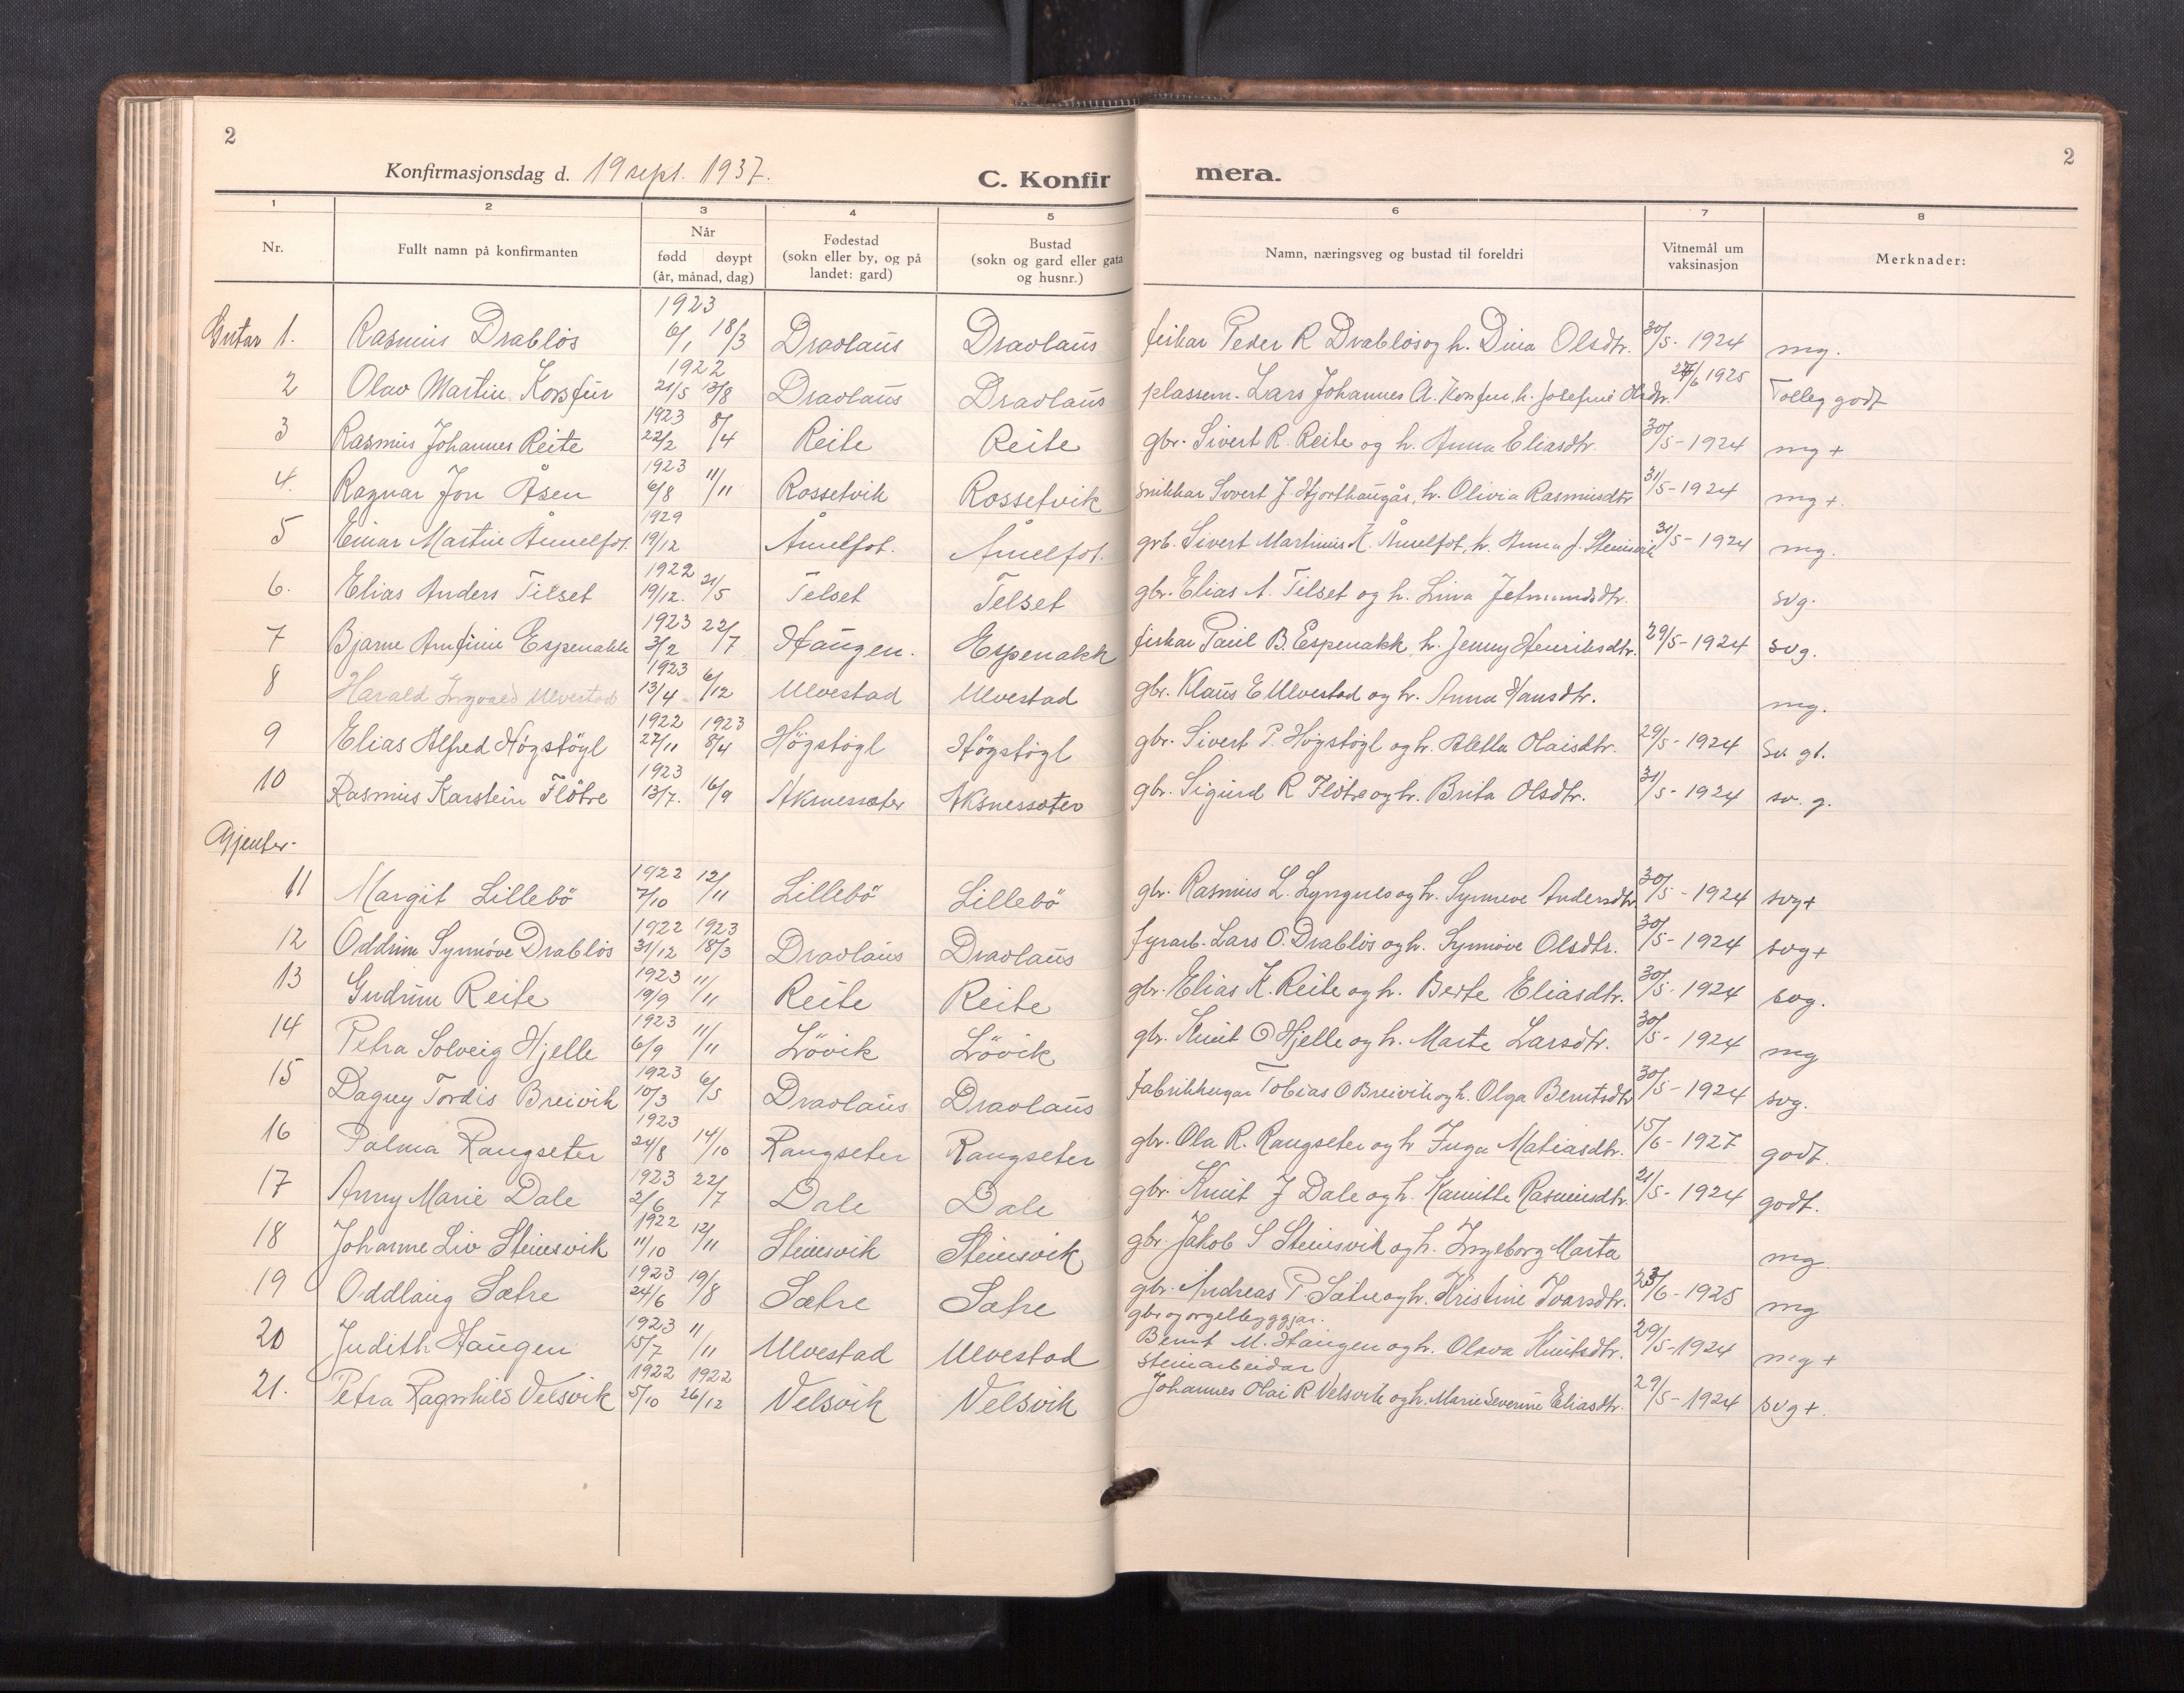 2
Konfirmasjonsdag d. 19 sept. 1937.
C. Konfir
mera.
2
1 2 3 4 5 6 7 8
Nr. Fullt namn på konfirmanten Når fødd døypt (år, månad, dag) Fødestad (sokn eller by, og på landet: gard) Bustad (sokn og gard eller gata og husnr.) Namn, næringsveg og bustad til foreldri Vitnemål um vaksinasjon Merknader:
Gutar 1. Rasmus Drabløs 1923 6/1 18/3 Dravlaus Dravlaus fiskar Peder R Drabløs og h. Dina Olsdtr. 30/5-1924 mg.
2 Olav Martin Korsfur 1922 21/5 13/8 Dravlaus Dravlaus plassem. Lars Johannes A. Korsfur, h. Josefine Olsdtr. 27/6 1925 Tolleg godt
3 Rasmus Johannes Reite 1923 22/2 8/4 Reite Reite gbr. Sivert R. Reite og h. Anna Eliasdtr. 30/5-1924 mg+
4. Ragnar Jon Åsen 1923 6/8 11/11 Rossetvik Rossetvik snikkar Sivert J. Hjorthaugår, h. Olivia Rasmusdtr 31/5-1924 mg+.
5 Einar Martin Åmelfot. 1929 19/12 Åmelfot. Åmelfot. grb. Sivert Martinus K. Åmelfot, h. Anna J. Steinsvik 31/5-1924 mg.
6. Elias Anders Tilset 1922 19/12. 21/5 Telset Telset gbr. Elias A. Tilset og h. Lina Jetmundsdtr. svg.
7 Bjarne Arnfinn Espenakk 1923 3/2 22/7 Haugen. Espenakk fiskar Paul B. Espenakk, h. Jenny Henriksdtr. 29/5-1924 svg.
8 Harald Ingvald Ulvestad 1923 13/4 6/12 Ulvestad Ulvestad gbr. Klaus E Ulvestad og h. Anna Hansdtr. mg.
9 Elias Alfred Högstögl 1922 27/11 1923 8/4 Högstögl Högstögl gbr. Sivert P. Högstögl og h. Aletta Olaisdtr. 29/5-1924 Sv. gt.
10 Rasmus Karstein Flötre 1923 13/7. 16/9 Aksnessæter Aksnessæter gbr. Sigurd R Flötre og h. Brita Olsdtr. 31/5-1924 sv. g.
Gjenter.
11 Margit Lillebö 1922 7/10 12/11 Lillebö Lillebö gbr. Rasmus L. Lyngnes og h. Synneve Andersdtr 30/5-1924 svg+
12 Oddrun Synnöve Drabløs 1922 31/12 1923 18/3 Dravlaus Dravlaus fyrarb. Lars O. Drabløs og h. Synnöve Olsdtr. 30/5-1924 svg+
13 Gudrun Reite 1923 19/9 11/11 Reite Reite gbr. Elias K. Reite og h. Berte Eliasdtr. 30/5-1924 svg.
14 Petra Solveig Hjelle 1923 6/9 11/11 Lövik Lövik gbr. Knut O Hjelle og h. Marte Larsdtr. 30/5-1924 mg
15 Dagny Tordis Breivik 1923 10/3 6/5 Dravlaus Dravlaus Fabrikkeigar Tobias O Breivik og h. Olga Berntsdtr 30/5-1924 svg.
16 Palma Rangseter 1923 24/8 14/10 Rangseter Rangseter gbr. Ola R. Rangseter og h Inga Matiasdtr. 15/6-1927 godt.
17 Anny Marie Dale 1923 2/6 22/7 Dale Dale gbr. Knut J Dale og h. Kamilla Rasmusdtr. 21/5-1924 godt.
18 Johanne Liv Steinsvik 1922 11/10 12/11 Steinsvik Steinsvik gbr. Jakob S Steinsvik og h. Ingeborg Marta mg.
19 Oddlaug Sætre 1923 24/6 19/8 Sætre Sætre gbr. Andreas P. Sætre og h. Kristine Ivarsdtr. 23/6-1925 mg
20 Judith Haugen 1923 15/7 11/11 Ulvestad Ulvestad gbr og orgelbygggjar. Bernt M. Haugen og h. Olava Knutsdtr. 29/5-1924 mg+
21. Petra Ragnhild Velsvik 1922 5/10 1922 26/12 Velsvik Velsvik steinarbeidar Johannes Olai R Velsvik og h. Marie Severine Eliasdtr. 29/5-1924 svg+.